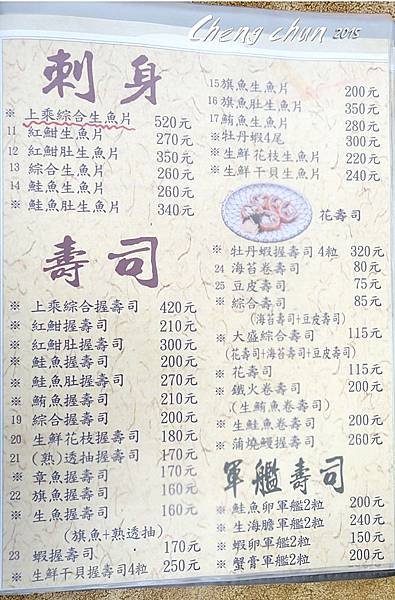 Cheng chun 2015
刺身
※ 上乘綜合生魚片 520元
11 紅魽生魚片 270元
12 紅魽肚生魚片 350元
13 綜合生魚片 260元
14 鮭魚生魚片 260元
※ 鮭魚肚生魚片 340元
壽司
※ 上乘綜合握壽司 420元
※ 紅魽握壽司 210元
※ 紅魽肚握壽司 300元
※ 鮭魚握壽司 200元
※ 鮭魚肚握壽司 270元
※ 鮪魚握壽司 210元
19 綜合握壽司 200元
20 生鮮花枝握壽司 180元
21 (熟)透抽握壽司 170元
※ 章魚握壽司 170元
22 旗魚握壽司 160元
※ 生魚握壽司 160元
(旗魚+熟透抽)
23 蝦握壽司 170元
※ 生鮮干貝握壽司4粒 250元
15 旗魚生魚片 200元
16 旗魚肚生魚片 350元
17 鮪魚生魚片 280元
※ 牡丹蝦4尾 300元
※ 生鮮花枝生魚片 220元
※ 生鮮干貝生魚片 240元
花壽司
※ 牡丹蝦握壽司4粒 320元
24 海苔卷壽司 80元
25 豆皮壽司 75元
※ 綜合壽司 85元
(海苔壽司+豆皮壽司)
※ 大盛綜合壽司 115元
(花壽司+海苔壽司+豆皮壽司)
※ 花壽司 115元
※ 鐵火卷壽司 200元
(生鮪魚卷壽司)
※ 生鮭魚卷壽司 200元
※ 蒲燒鰻握壽司 260元
軍艦壽司
※ 鮭魚卵軍艦2粒 200元
※ 生海膽軍艦2粒 240元
※ 蝦卵軍艦2粒 150元
※ 蟹膏軍艦2粒 200元